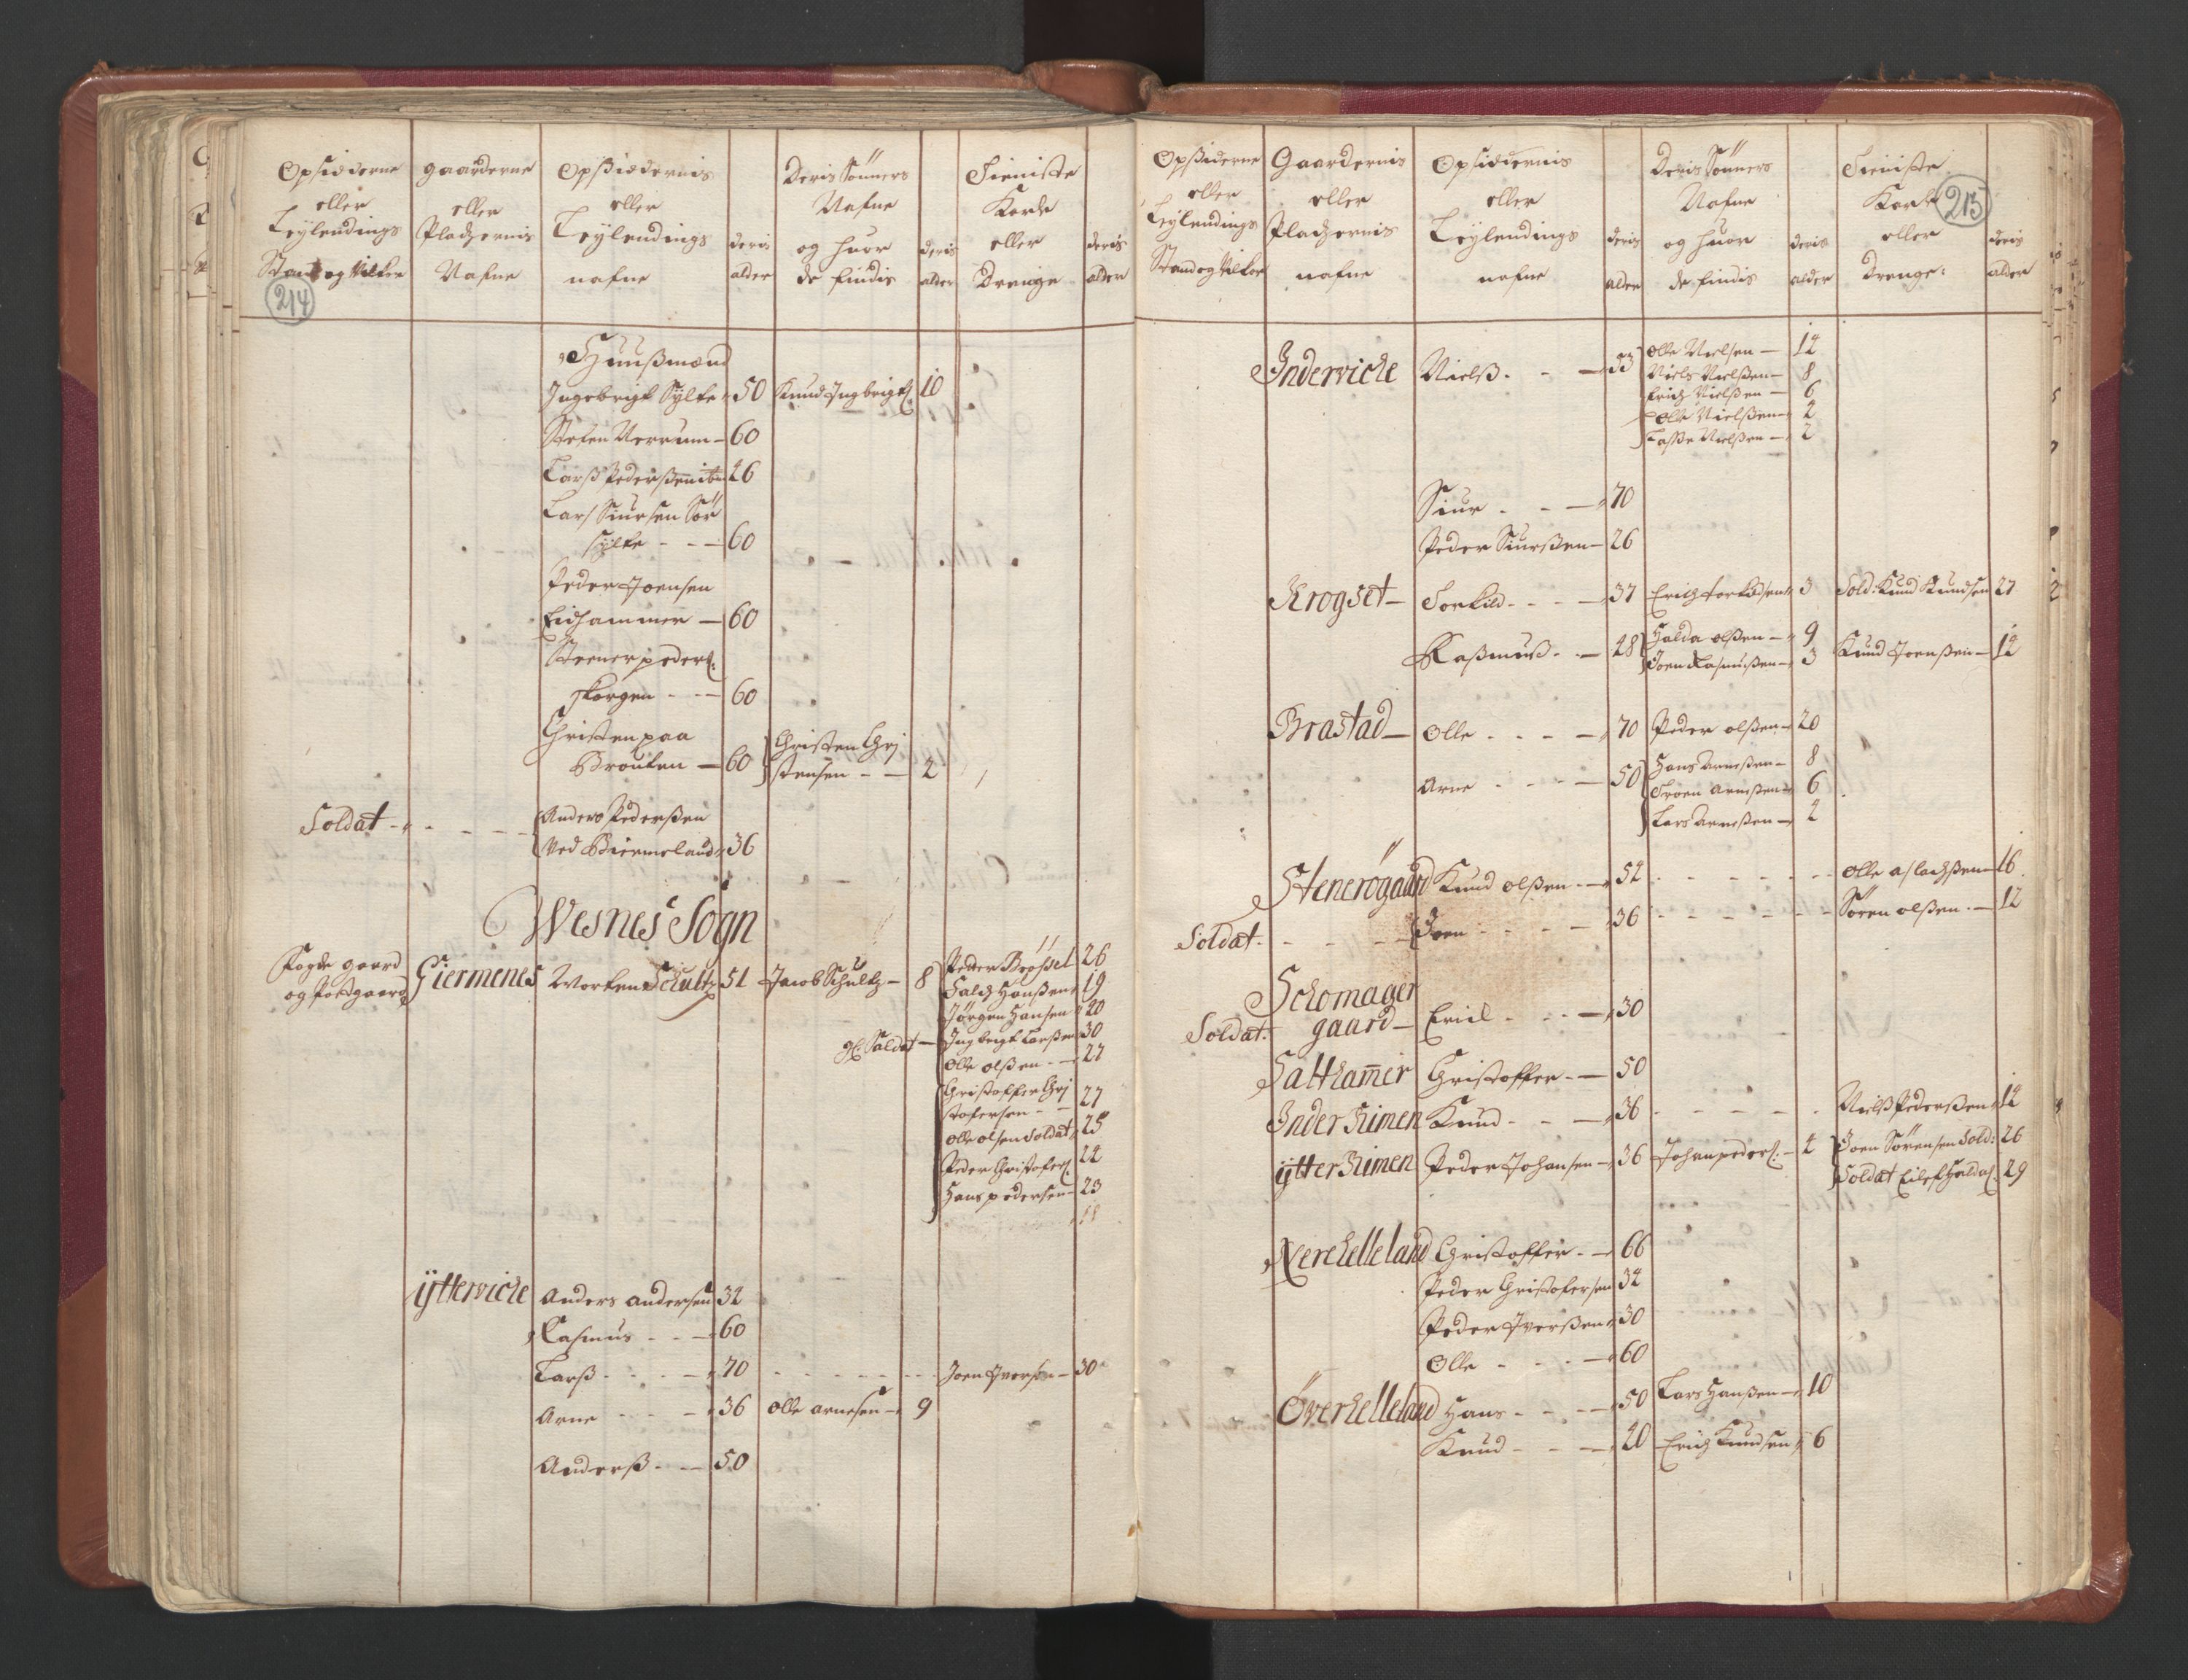 Opsidderne eller Leylendings Stand og Vilkor
gaarderne eller Pladzernis Nafne
Opsiddernis eller Leylendings nafne
deris alder
Deris Sönners Nafne og huor de findis
deris alder
Tieniste Karle eller Drenge
deris alder
214
Huusmænd
Ingebrigt Sylte 50 Knud Ingbrigts: 10
Stefen Nerrum 60
Lars Pedersen 26
Lars Siursen Sör
Sylte 60
Peder Joensen
Eidhammer 60
Steener peders:
skorgen 60
Christen paa
Brouken 60 Christen Chri
stensen 2
Soldat Anders Pedersen
Ved Biermeland 36
Wesnes Sogn
Fogde gaard
og Postgaard Giermenes Morten Schultz 51 Jacob Schultz 8 Peder Brössel 26
Falch Hansen 19
Jörgen Hansen 20
gl: Soldat Ingbrigt Larsen 30
Olle olsen 27
Christoffer Chri
stofersen 27
olle olsen Soldat 25
Peder Christofers: 22
Hans pedersen 23
18
ÿttervicke Anders andersen 32
Rasmus 60
Lars 70 Joen Iversen 30
Arne 36 olle arnesen 9
Anders 50
Opsiderne eller Leylendings Stand og Vilkor
Gaardernis eller Pladzernis nafne
Opsiddernis eller Leylendings nafne
deris alder
Deris Sönners Nafne og huor de findis
deris alder
Tieniste Karle eller Drenge:
deris alder
215
Indervicke Niels 53 Olle Nielsen 12
Niels Nielsen 8
Erich Nielsen 6
Olle Nielsen 2
Lasse Nielsen 2
Siur 70
Peder Siursen 26
Krogset Torkild 37 Erich Torkildsen 3 Sold: Knud Knudsen 27
Rasmus 28 Halda olsen 9 Knud Joensen 12
Joen Rasmusen 3
Brastad Olle 70 Peder olsen 20
Arne 50 Hans Arnesen 8
Troen Arnesen 6
Lars Arnesen 2
Stenerögaard Knud olsen 52 olle aslachsen 16
Soldat Joen 36 Sören olsen 12
Schomager
Soldat: gaard Erick 30
Saltkam̄er Christoffer 50
Inder Himen Knud 36 Niels Pedersen 12
ÿtter Himen Peder Johansen 36 Johan peders: 2 Joen Sörensen Sold: 26
Soldat Eilef Haldas: 29
Nerhelleland Christoffer 66
Peder Christofersen 32
Peder Iversen 30
Olle 60
Överhelleland Hans 50 Lars Hansen 10
Knud 20 Erich Knudsen 6